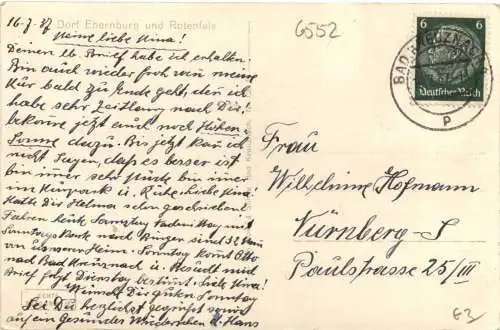 16-7.37
Dorf Ebernburg und Rotenfels
6552
Meine liebe Mina!
Deinen lb. Brief habe ich erhalten!
Bin auch wieder froh wenn meine
Kur bald zu Ende geht, den ich
habe sehr Zeitlang nach Dir!
bekome jetzt auch noch Höhen-
Sonne dazu. Bis jetzt kan ich
nicht sagen, daß es besser ist
bin imer sehr müde bin imer
im Kurpark u. Ruhe. Liebe Mina!
Hatte Dir Helma schon geschrieben!
Fahren heute Samstag
Sonntags nach Bingen sind
von unserem Heim. Sonntag komt Otto
nach Bad Kreuznach u. besucht mich
Brief folgt Dienstag bestimt! Liebe Mina!
Wünsche Dir guten Sonntag
Sei Du herzlichst gegrüßt sowie
auf ein Gesundes Wiedersehen Hans
6
6
Deutsches Reich
BAD KREUZNACH
P
Frau
Wilhelmine Hofmann
Nürnberg-S
Paulstrasse 25/III